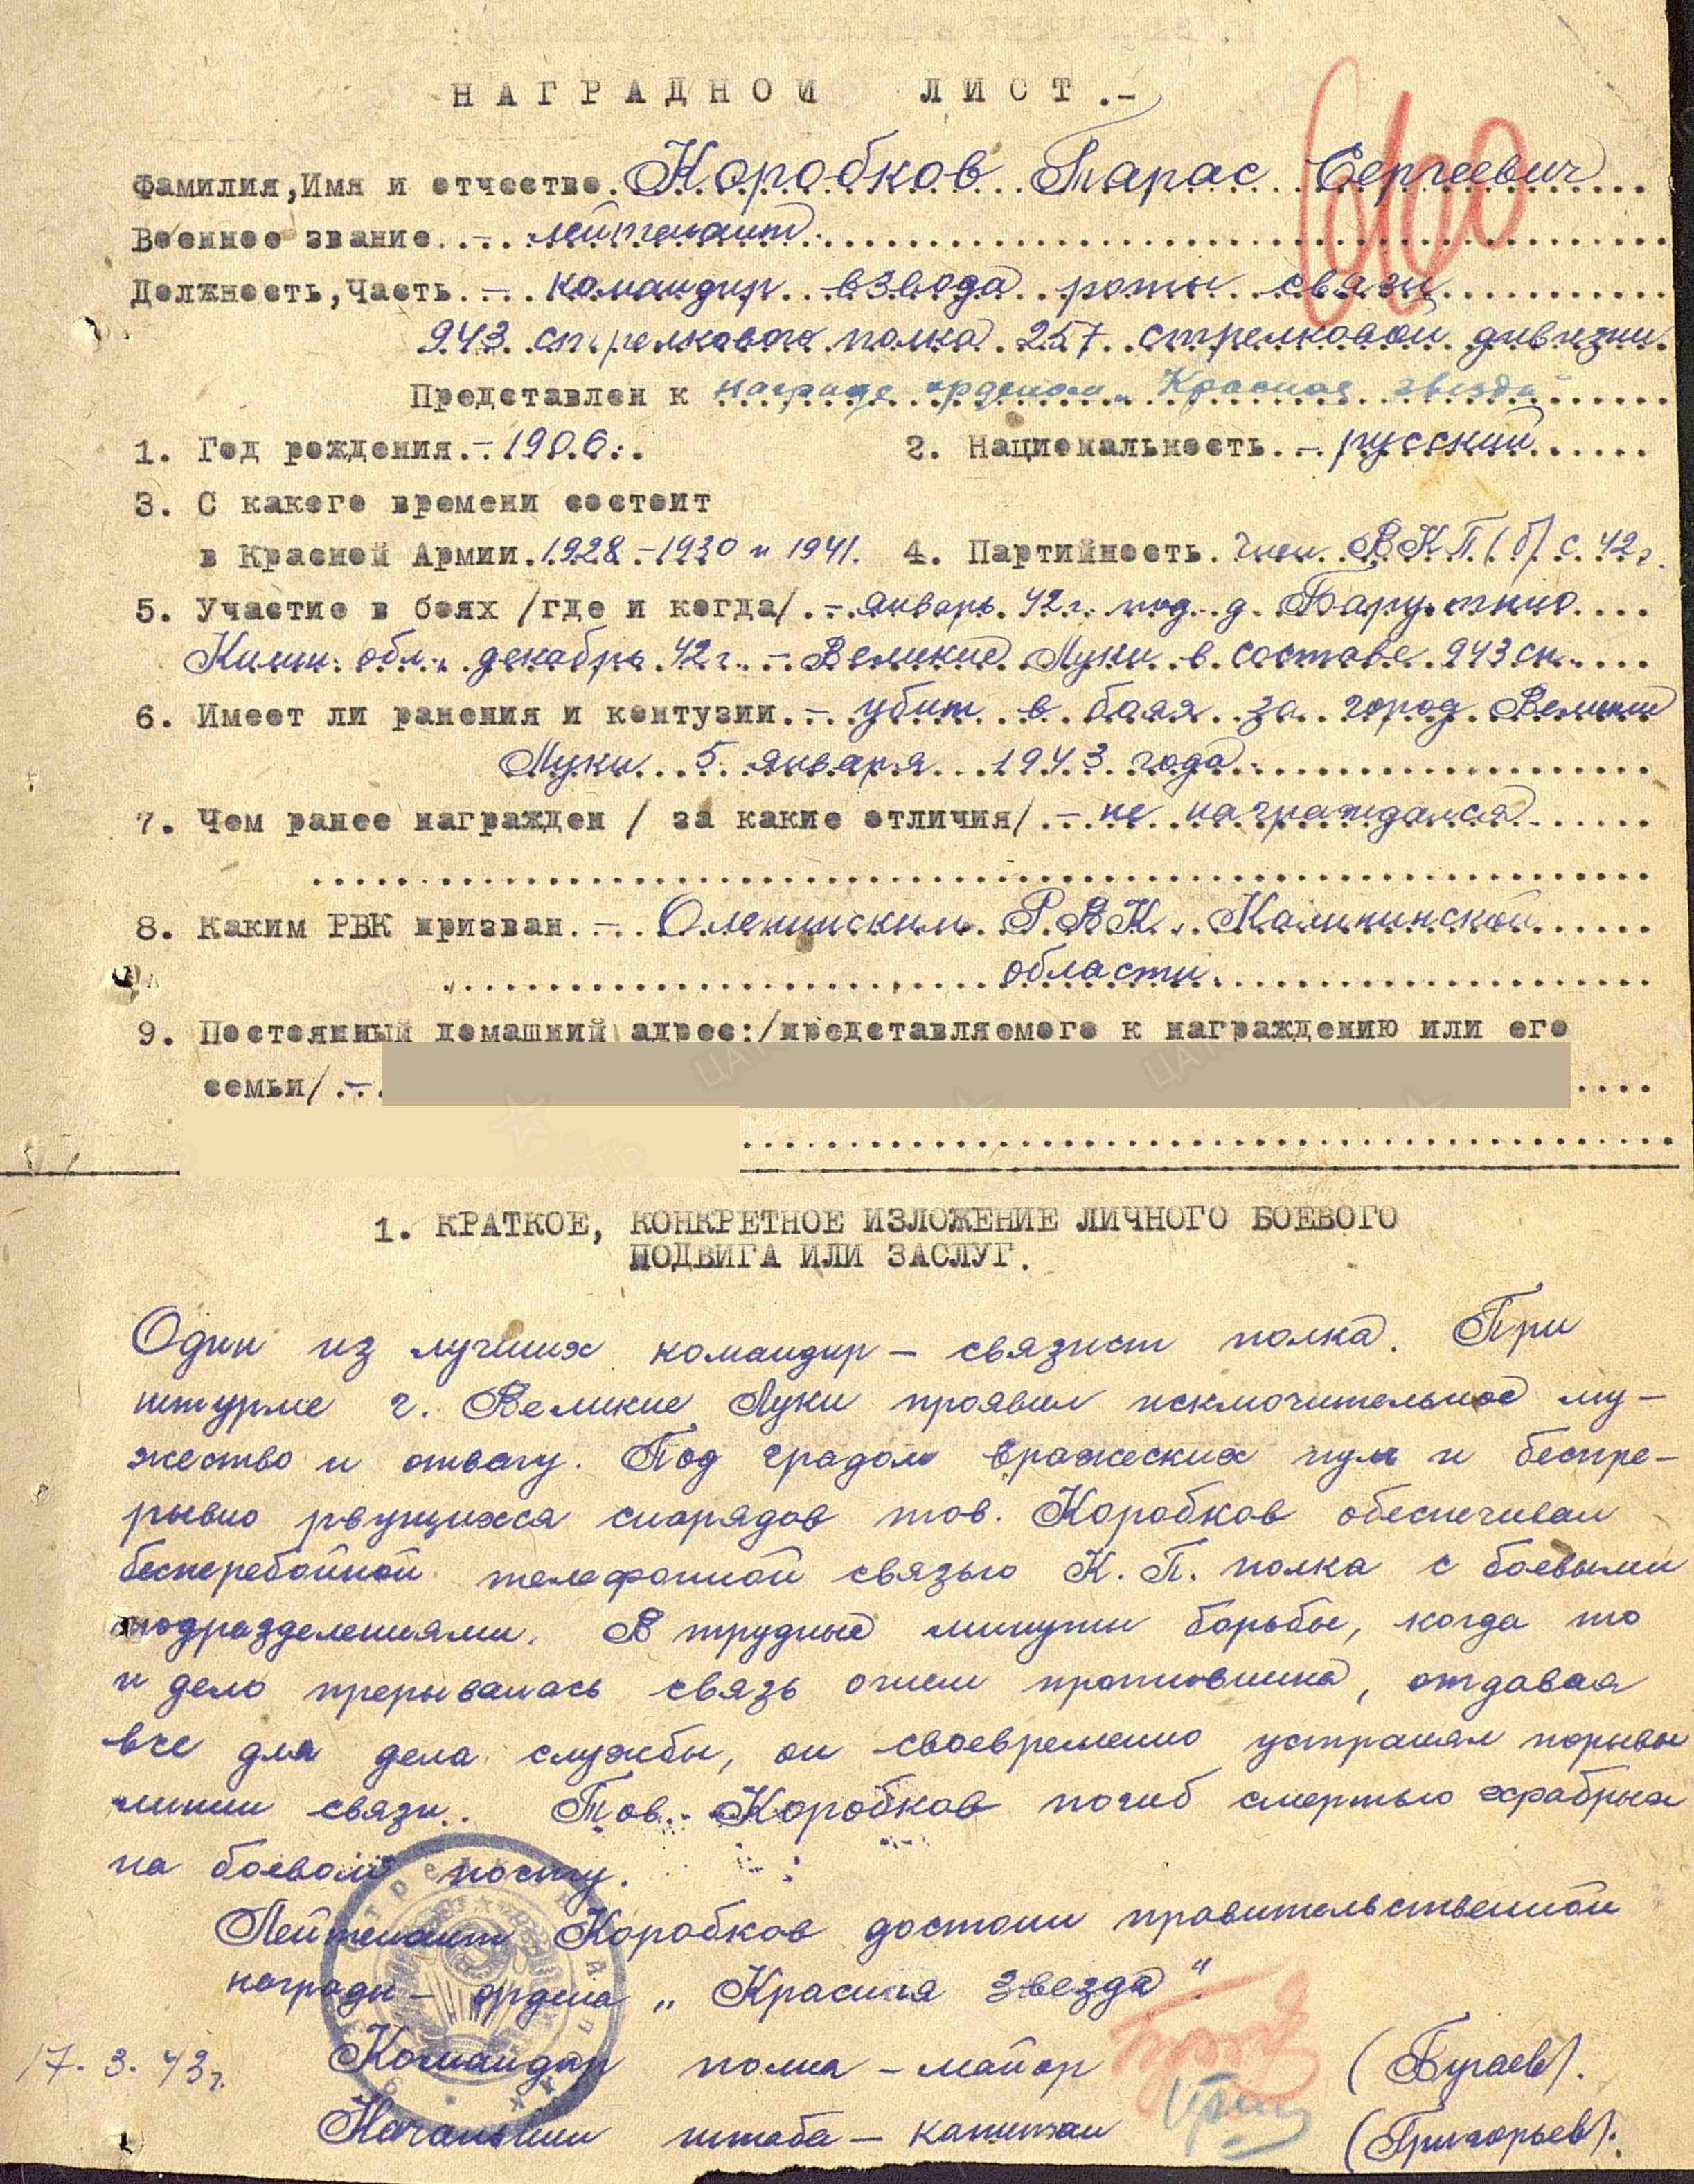 НАГРАДНОЙ ЛИСТ.-
Фамилия, Имя и отчество. Коробков Тарас Сергеевич
Военное звание. - лейтенант.
Должность, Часть. - командир взвода роты связи
943 стрелкового полка 257 стрелковой дивизии.
Представлен к награде орденом „Красная звезда"
1. Год рождения. - 1906.
2. Национальность. - русский
3. С какого времени состоит
в Красной Армии. 1928-1930 и 1941.
4. Партийность. член ВКП(б) с 42г.
5. Участие в боях /где и когда/. - январь 42г. под д.
Калин. обл., декабрь 42г. - Великие Луки в составе 943 сп.
6. Имеет ли ранения и контузии. - убит в боях за город Великие
Луки 5 января 1943 года.
7. Чем ранее награжден / за какие отличия/. - не награждался
8. Каким РВК призван. - Оленинским РВК, Калининской
области.
9. Постоянный домашний адрес:/представляемого к награждению или его
семьи/. -
1. КРАТКОЕ, КОНКРЕТНОЕ ИЗЛОЖЕНИЕ ЛИЧНОГО БОЕВОГО
ПОДВИГА ИЛИ ЗАСЛУГ.
Один из лучших командир - связист полка. При
штурме г. Великие Луки проявил исключительное му-
жество и отвагу. Под градом вражеских пуль и беспре-
рывно рвущихся снарядов тов. Коробков обеспечивал
бесперебойной телефонной связью К.П. полка с боевыми
подразделениями. В трудные минуты борьбы, когда то
и дело прерывалась связь огнем противника, отдавая
все для дела службы, он своевременно устранял порывы
линии связи. Тов. Коробков погиб смертью храбрых
на боевом посту.
Лейтенант Коробков достоин правительственной
награды - ордена „Красная Звезда".
17.3.43г. Командир полка - майор (Бугаев).
Начальник штаба - капитан (Григорьев).